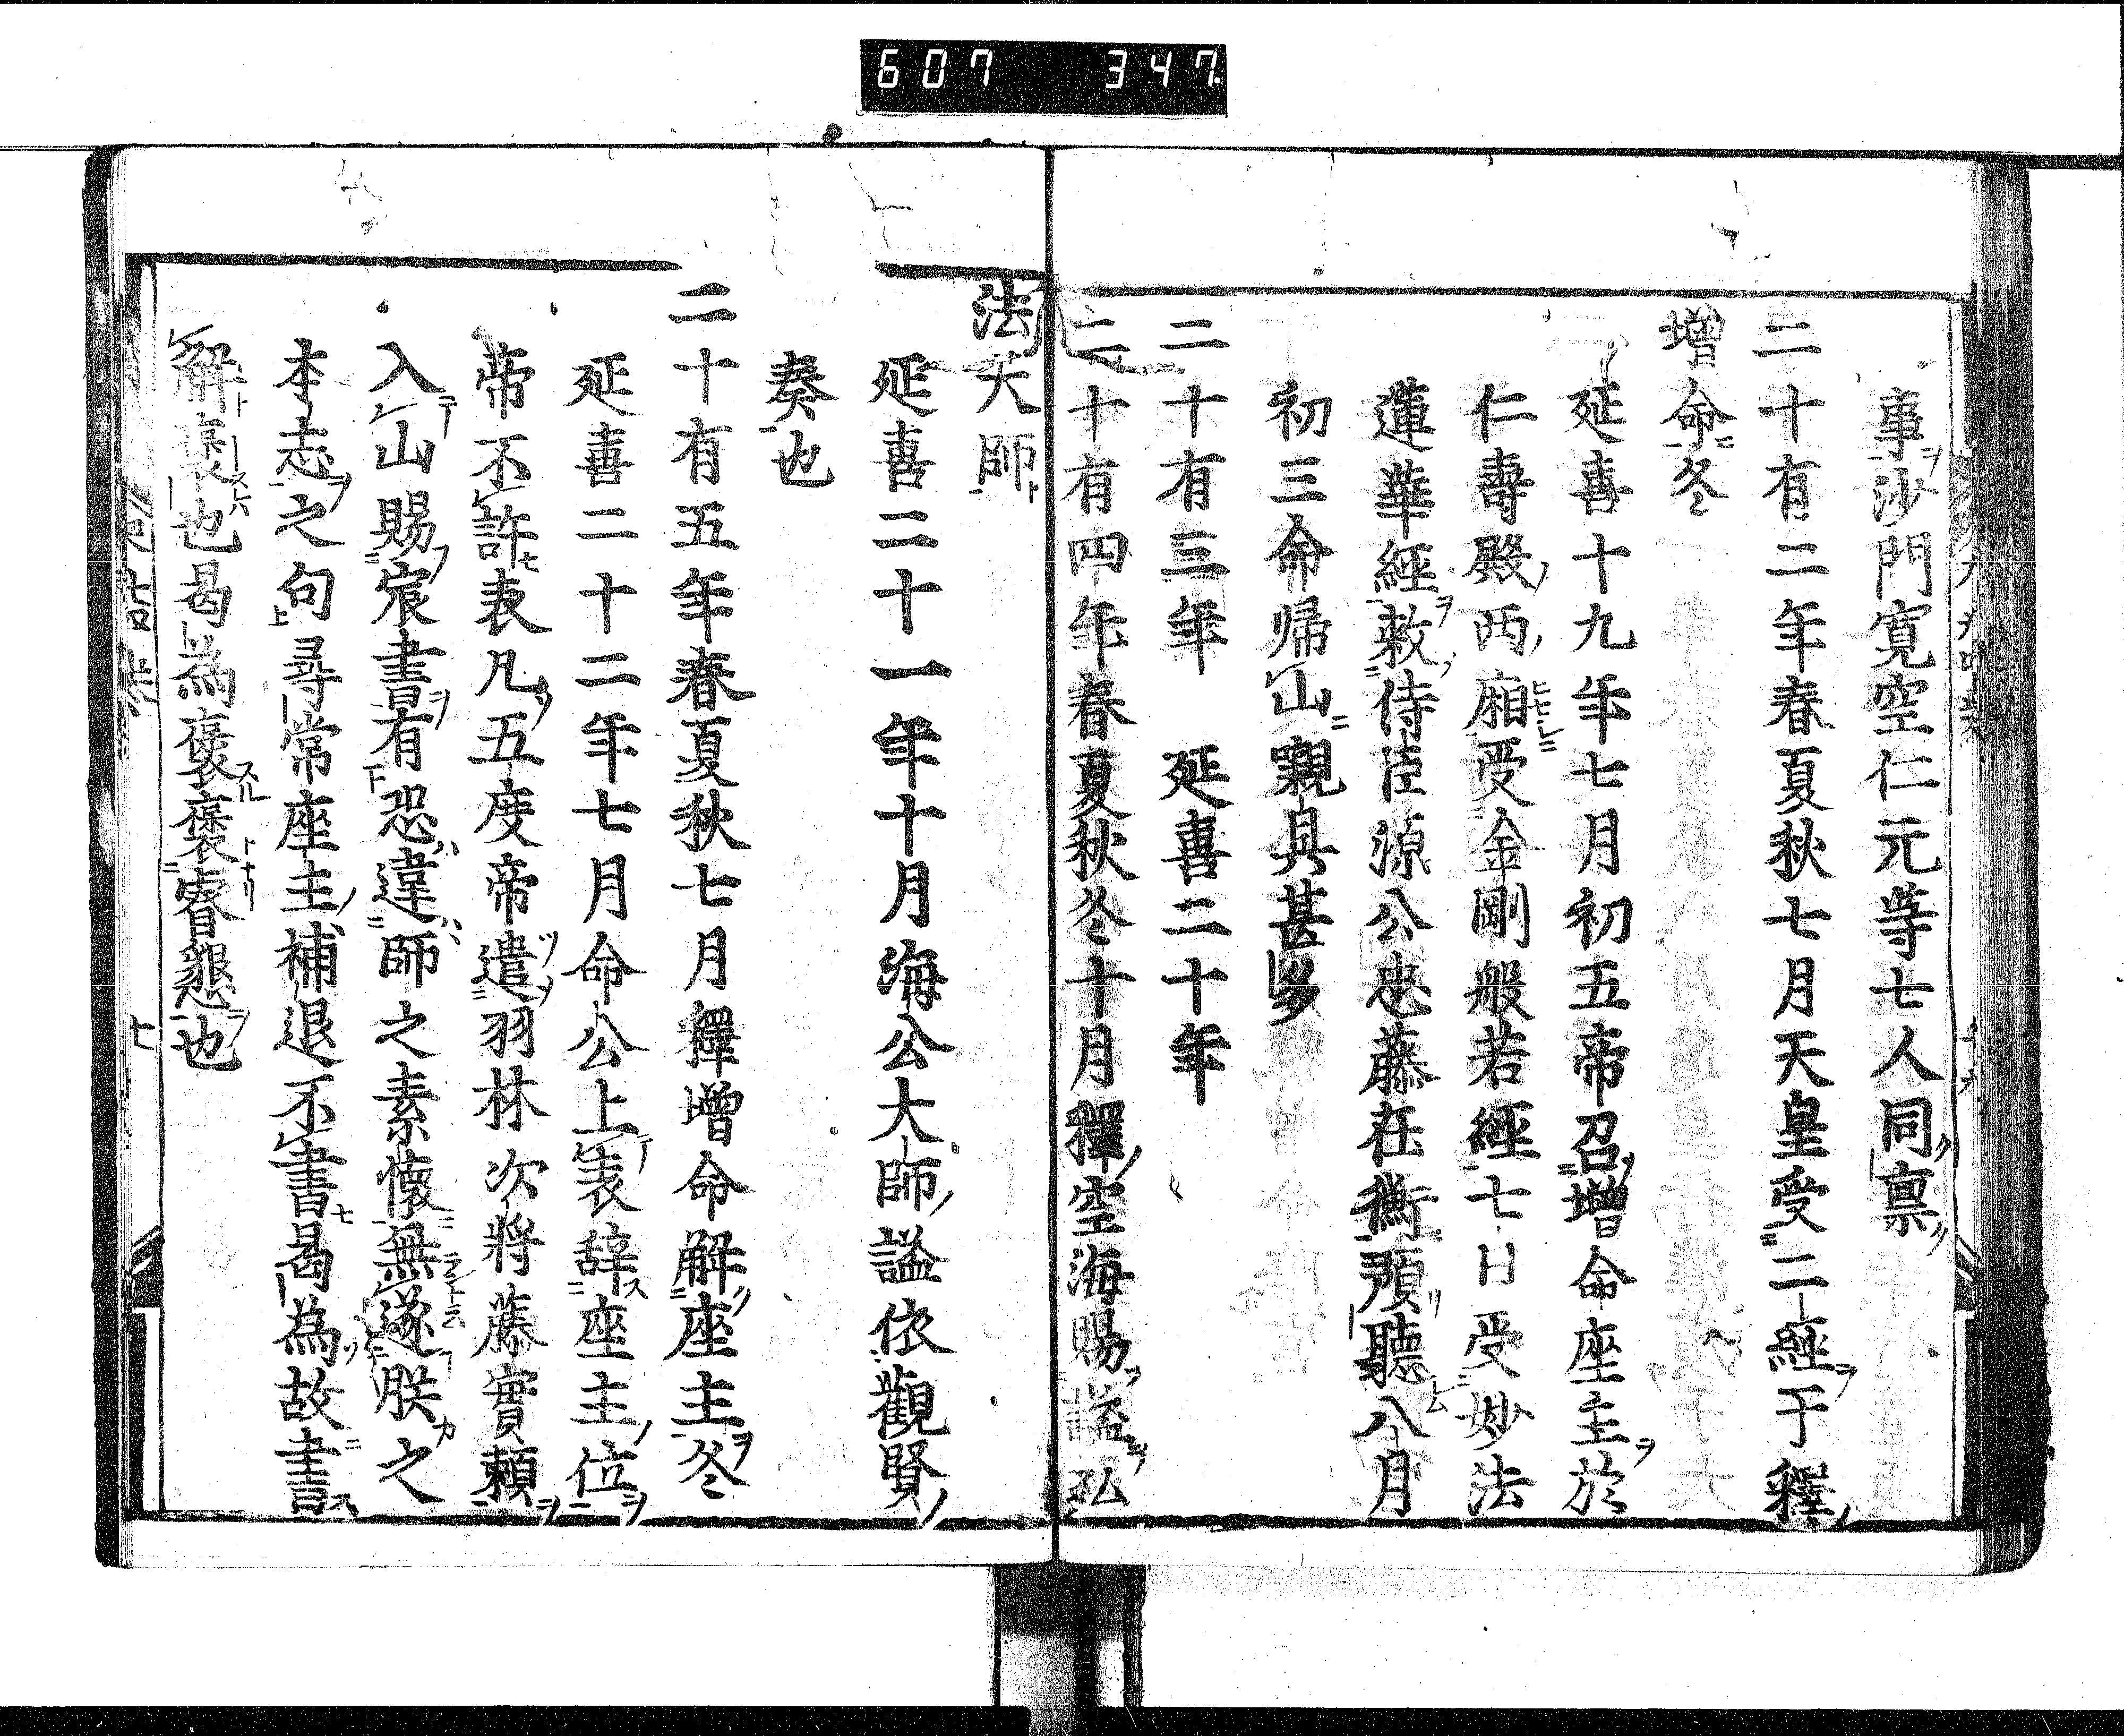 607 347
事沙門寛空仁元等七人同稟
二十有二年春夏秋七月天皇受二經于釋
増命冬
延喜十九年七月初五帝召増命座主於
仁壽殿西廂受金剛般若經七日受妙法
蓮華經敕侍臣源公忠藤在衡預聽八月
初三命帰山嚫具甚多
二十有三年 延喜二十年
二十有四年春夏秋冬十月釋空海賜謚弘
法大師
延喜二十一年十月海公大師謚依觀賢
奏也
二十有五年春夏秋七月釋増命解座主冬
延喜二十二年七月命公上表辞座主位
帝不許表凡五度帝遣羽林次將藤實頼
入山賜宸書有恐違師之素懷無遂朕之
本志之句尋常座主補退不書曷為故書
解褒也曷為褒褒睿懇也
七